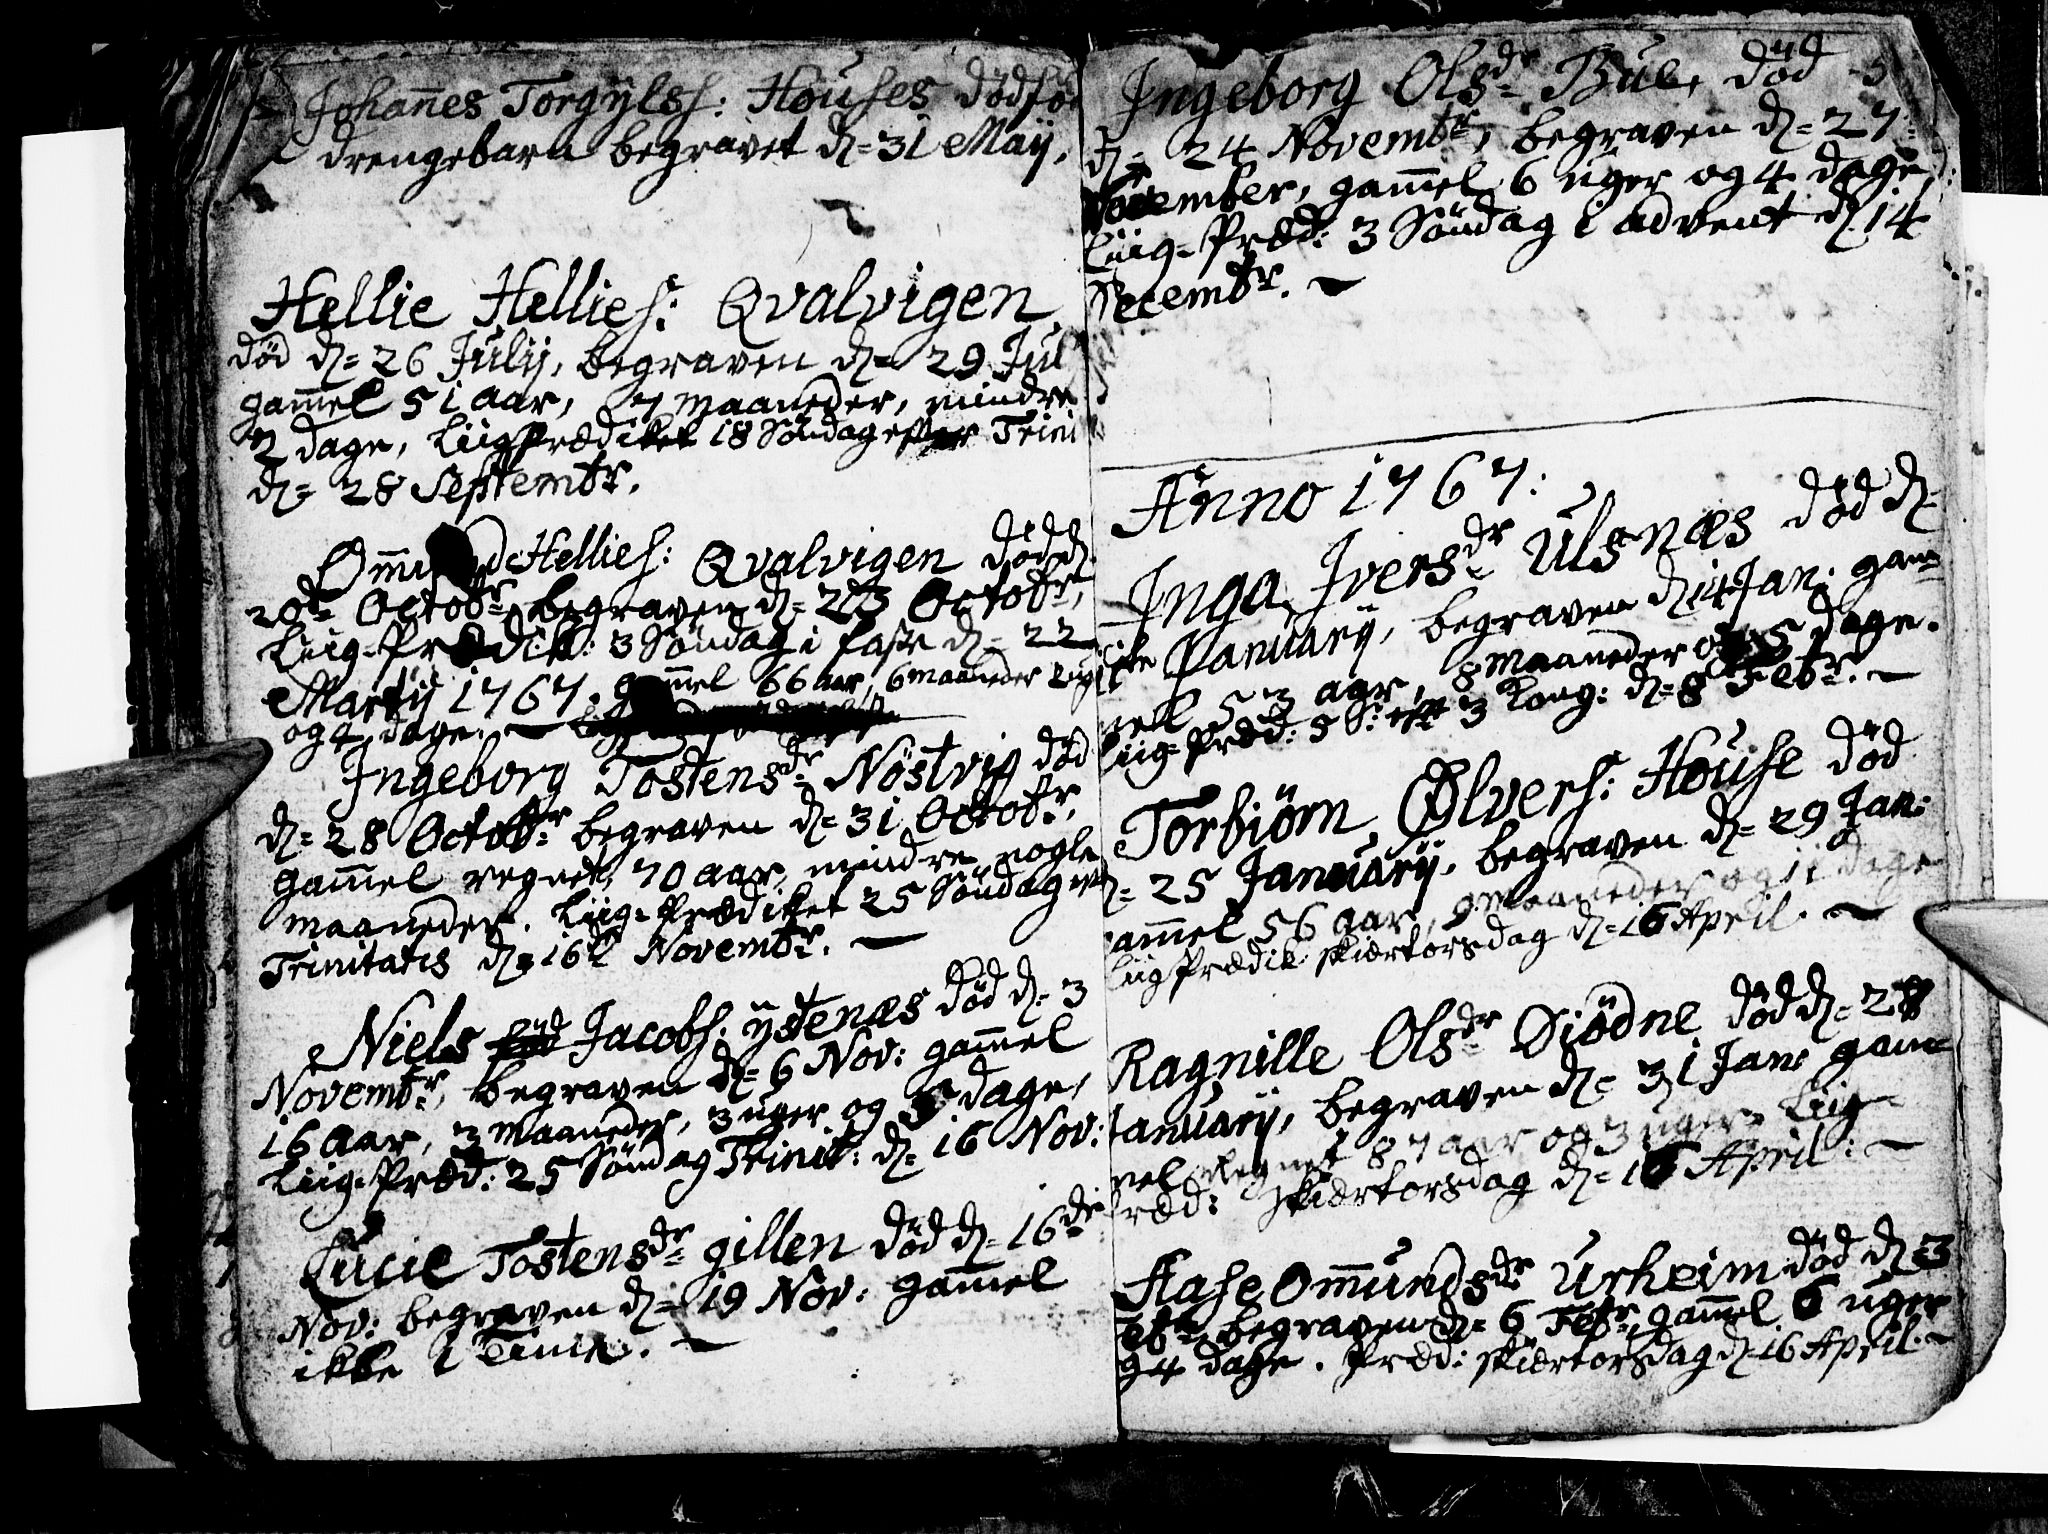 Johannes Torgÿlss: Houses dødfø
drengebarn begravet d= 31 Maÿ.
Hellie Hellies: Qvalvigen
død d= 26 Julÿ, begraven d= 29 Jul
gam̄el 51 aar, 7 maaneder, mindre
2 dage, Liigprædiket 18 Søndag efter Trini
d= 28 Septembr.
Hellies: Qvalvigen død d.
20de Octobr, begraven d= 23 Octobr,
Liig-Prædik: 3 Søndag i faste d= 22
Martÿ 1767. gam̄el 66 aar, 6 maaneder
og 4 dage. —
Ingeborg Tostensdr Nøstvig død
d= 28 Octobr begraven d= 31 Octobr.
gam̄el regnet, 70 aar, mindre nogle
maaneder. Liig-prædiket 25 Søndag
Trinitatis d= 16de Novembr. —
Niels Jacobs: ÿstenæs død d= 3
Novembr, begraven d= 6 Nov: gam̄el
16 aar, 3 maaneder, 3 uger og dage,
Liig-Præd: 25 Søndag Trinit: d= 16 Nov:
Lucie Tostensdr gillen død d= 16de
Nov: begraven d= 19 Nov: gam̄el
ikke 1 Time. —
Ingeborg Olsdr Bue, død
d= 24 Novembr, begraven d= 27
November, gam̄el 6 uger og 4 dage,
Liig-Præd: 3 Søndag i advent d. 14
Decembr. —
Anno 1767:
Inga Iversdr Ulsnæs død d=
Januarÿ, begraven d. 14 Jan: gam=
mel 53 aar, 8 maaneder og 5 dage.
Liig-Præd: 5 S: eft 3 Kong: d= 8 Febr. —
Torbiørn Ølvers: House død
d= 25 Januarÿ, begraven d= 29 Jan:
gam̄el 56 aar, 9 maaneder og 11 dage
Liigprædik: skiærtorsdag d= 16 April. —
Ragnille Olsdr Diødne død d= 28
Januarÿ, begraven d= 31 Jan: gam=
mel regnet 87 aar og 3 uger. Liig-
præd: skiærtorsdag d= 16 April: —
Aase Om̄undsdr Urheim død d= 3
Febr, begraven d= 6 Febr, gam̄el 6 uger
og 4 dage. Præd: skiærtorsdag d= 16 April. —